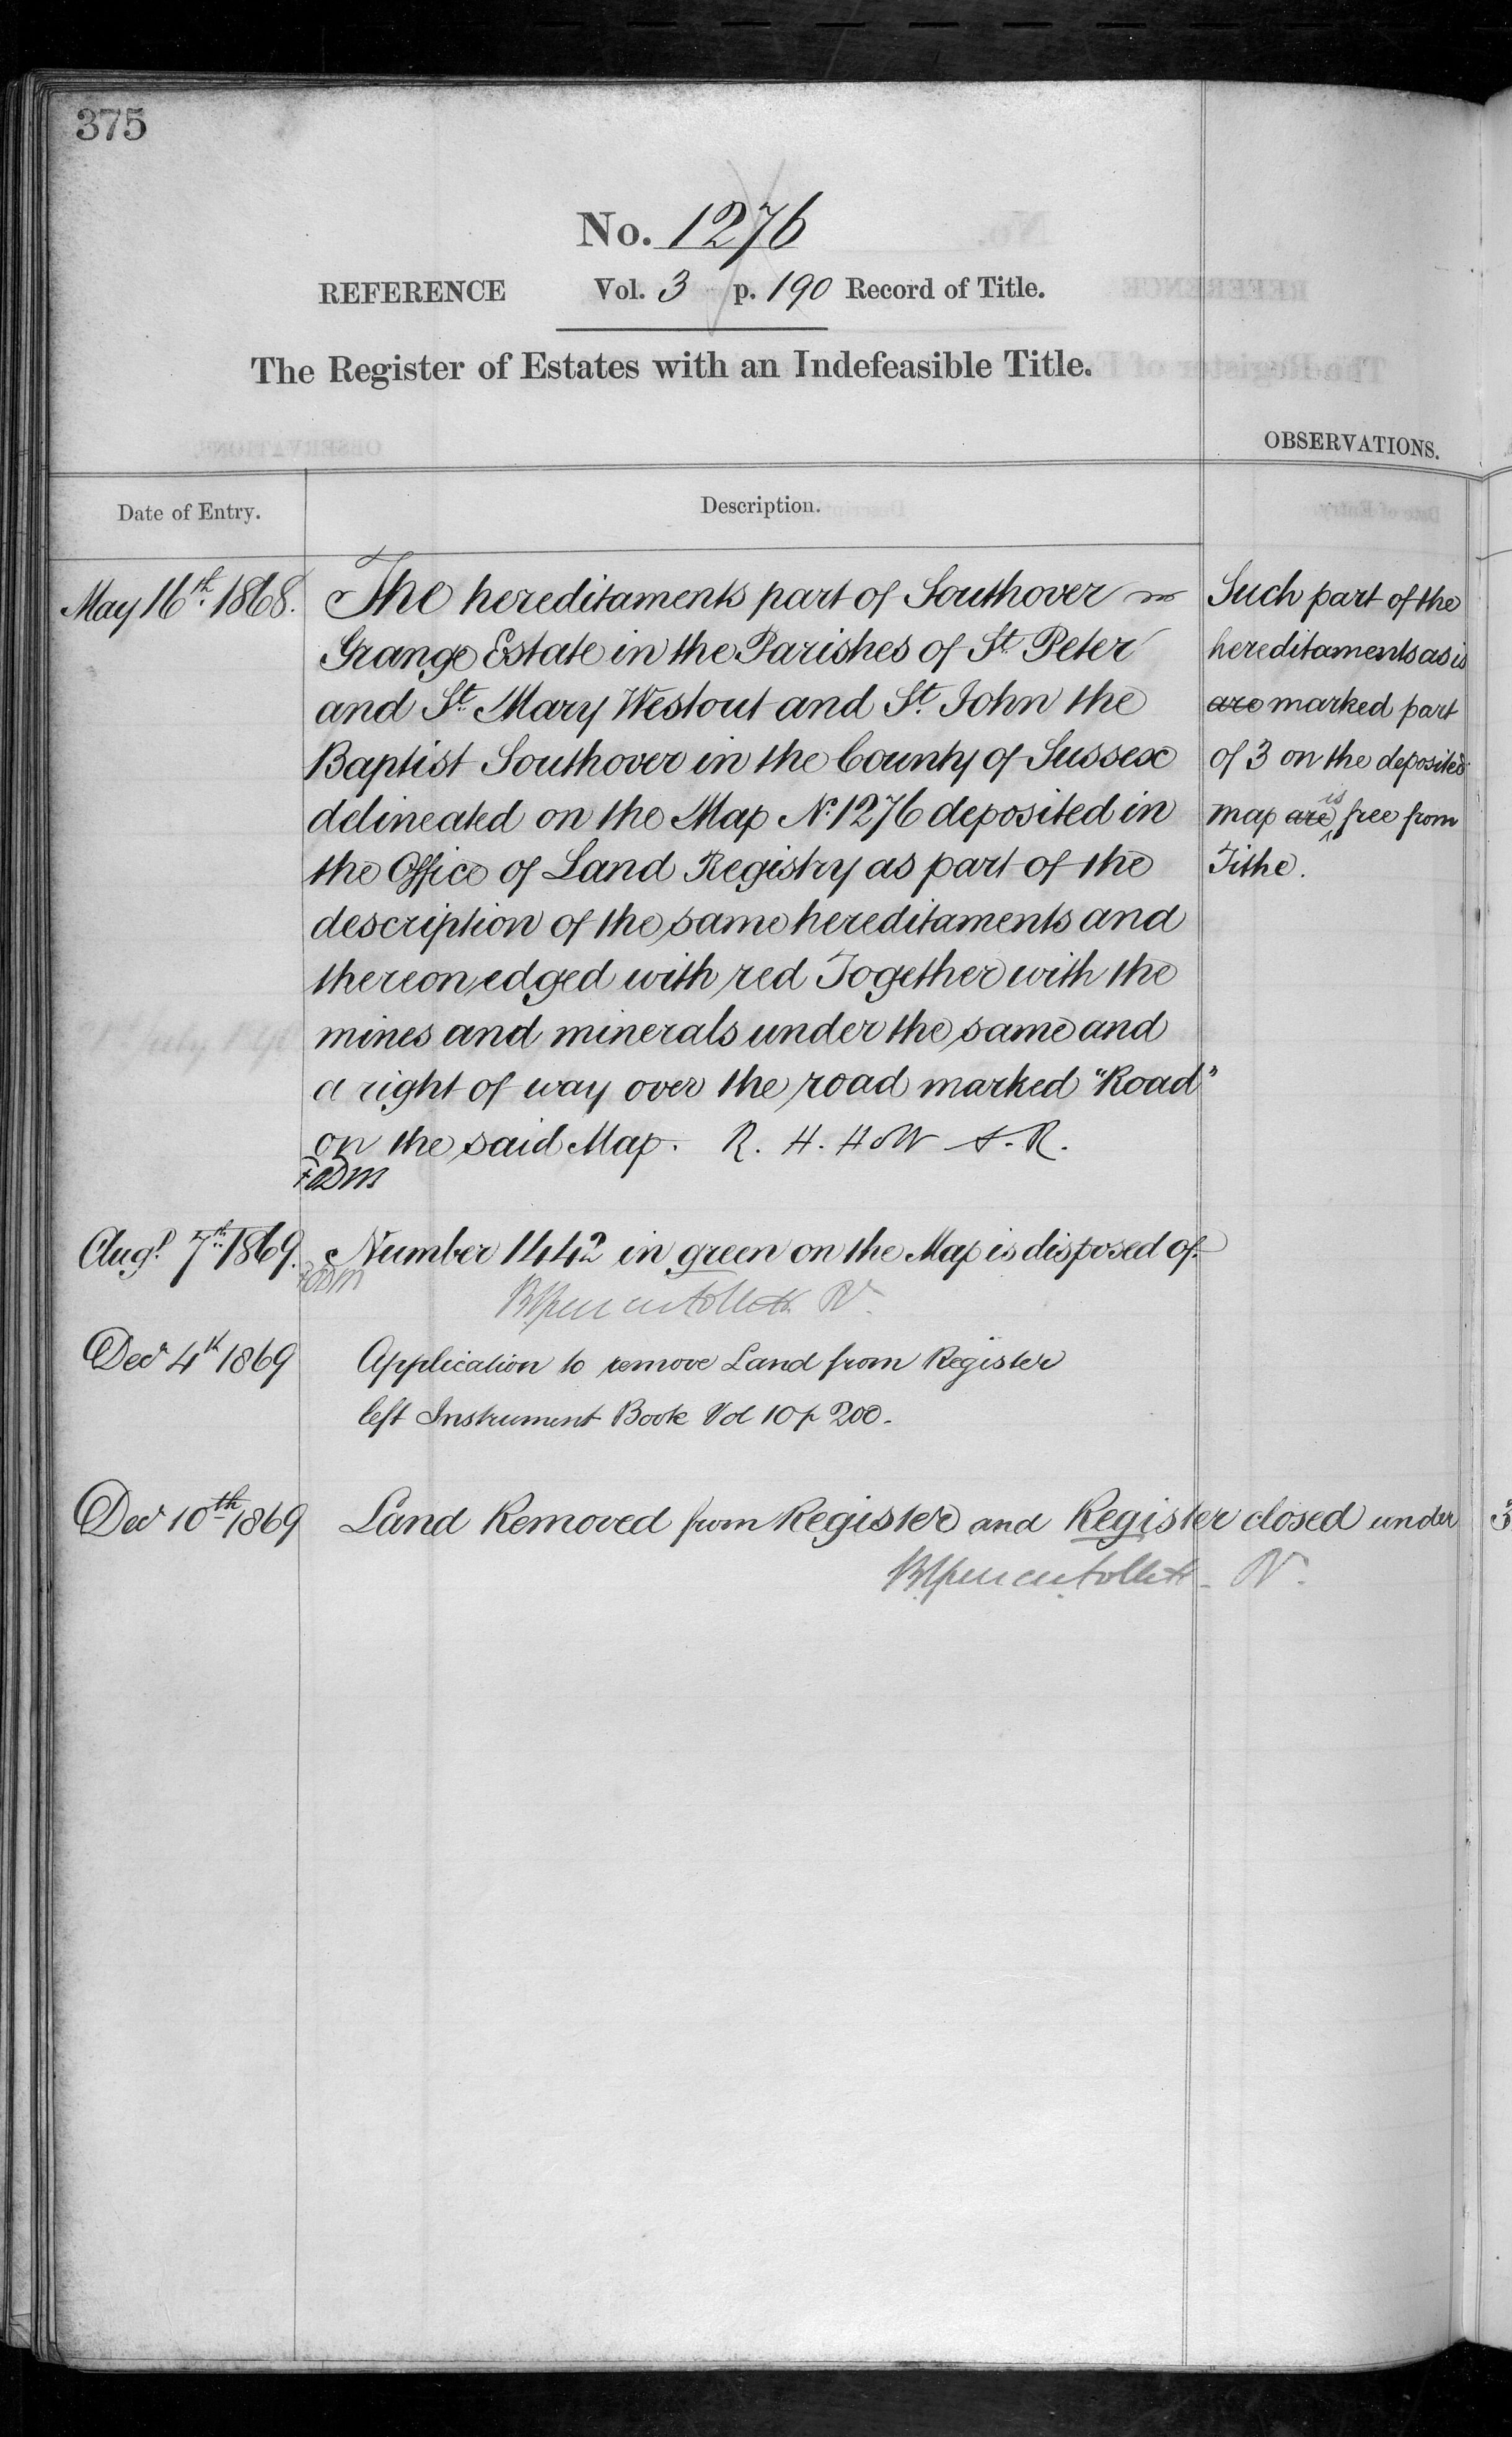 375
No. 1276
REFERENCE Vol. 3 p. 190 Record of Title.
The Register of Estates with an Indefeasible Title.
OBSERVATIONS.
Date of Entry.
Description.
May 16th. 1868.
The hereditaments part of Southover
Grange Estate in the Parishes of St. Peter
and St. Mary Westout and St. John the
Baptist Southover in the County of Sussex
delineated on the Map No. 1276 deposited in
the Office of Land Registry as part of the
description of the same hereditaments and
thereon edged with red Together with the
mines and minerals under the same and
a right of way over the road marked "Road"
on the said Map. R. H. Holt A. R.
Such part of the
hereditaments as is
are marked part
of 3 on the deposited
map are is free from
Tithe.
Augt. 7th. 1869.
Number 1442 in green on the Map is disposed of.
Decr 4th 1869
Application to remove Land from Register
left Instrument Book Vol 10 p 200.
Decr 10th 1869
Land Removed from Register and Register closed under